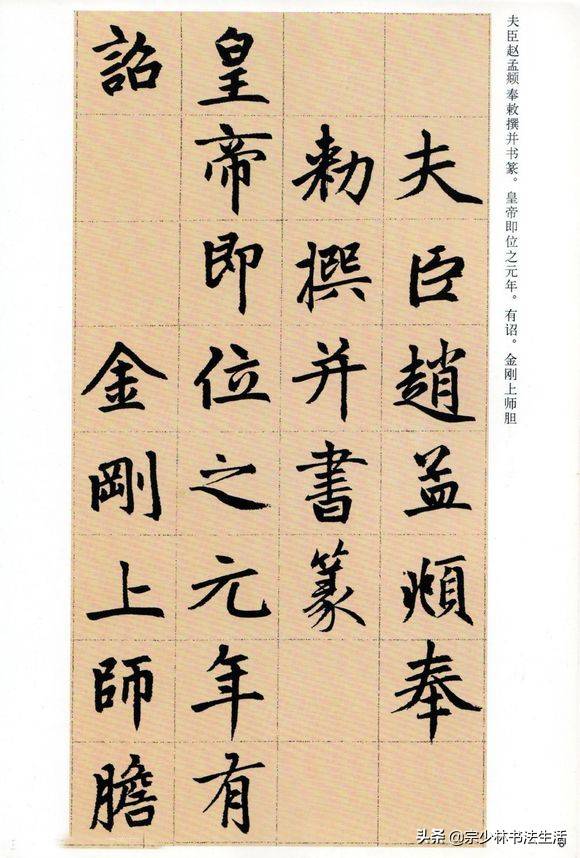 夫臣赵孟頫奉敕撰并书篆。皇帝即位之元年。有诏。金刚上师胆
夫臣趙孟頫奉
勅撰并書篆
皇帝即位之元年有
詔金剛上師膽
头条 @宗少林书法生活